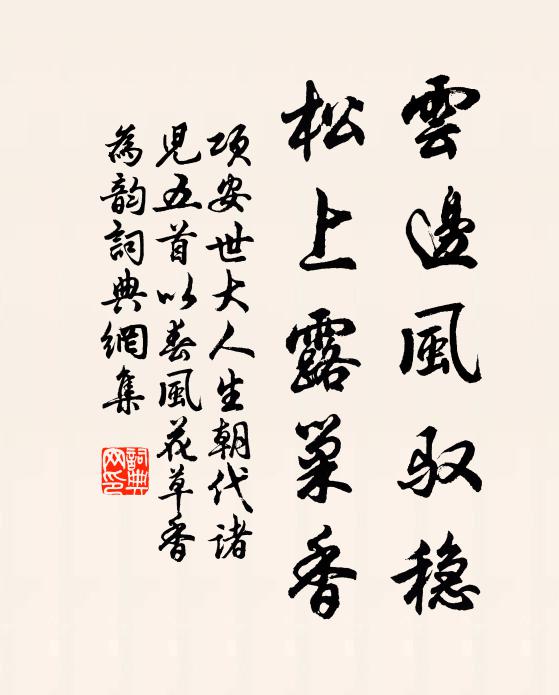 雲邊風馭穩
松上露巢香
項安世大人生朝代諸
児五首以春風花草香
為韵詞典網集
詞典网印